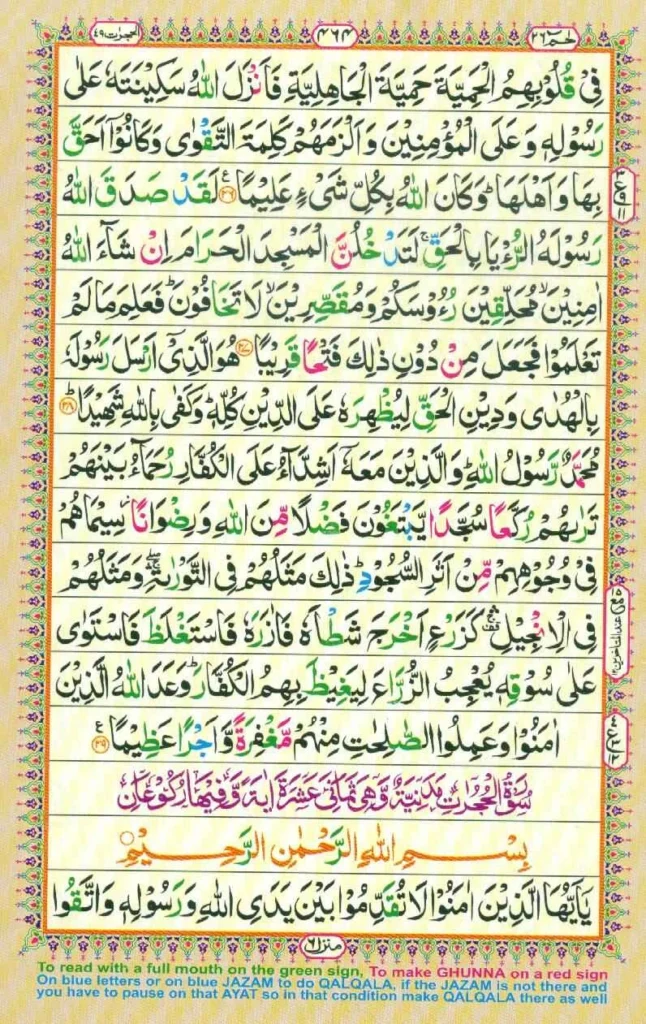 حٰمٓ ٢٦
٤٦٤
الحجرٰت ٤٩
فِیْ قُلُوْبِهِمُ الْحَمِیَّةَ حَمِیَّةَ الْجَاهِلِیَّةِ فَاَنْزَلَ اللّٰهُ سَكِیْنَتَهٗ عَلٰی
رَسُوْلِهٖ وَعَلَی الْمُؤْمِنِیْنَ وَاَلْزَمَهُمْ كَلِمَةَ التَّقْوٰی وَكَانُوْۤا اَحَقَّ
بِهَا وَاَهْلَهَا ؕ وَكَانَ اللّٰهُ بِكُلِّ شَیْءٍ عَلِیْمًا ﴿٢٦﴾ لَقَدْ صَدَقَ اللّٰهُ
رَسُوْلَهُ الرُّءْیَا بِالْحَقِّ ۚ لَتَدْخُلُنَّ الْمَسْجِدَ الْحَرَامَ اِنْ شَآءَ اللّٰهُ
اٰمِنِیْنَ ۙ مُحَلِّقِیْنَ رُءُوْسَكُمْ وَمُقَصِّرِیْنَ ۙ لَا تَخَافُوْنَ ؕ فَعَلِمَ مَا لَمْ
تَعْلَمُوْا فَجَعَلَ مِنْ دُوْنِ ذٰلِكَ فَتْحًا قَرِیْبًا ﴿٢٧﴾ هُوَ الَّذِیْۤ اَرْسَلَ رَسُوْلَهٗ
بِالْهُدٰی وَدِیْنِ الْحَقِّ لِیُظْهِرَهٗ عَلَی الدِّیْنِ كُلِّهٖ ؕ وَكَفٰی بِاللّٰهِ شَهِیْدًا ﴿٢٨﴾ؕ
مُحَمَّدٌ رَّسُوْلُ اللّٰهِ ؕ وَالَّذِیْنَ مَعَهٗۤ اَشِدَّآءُ عَلَی الْكُفَّارِ رُحَمَآءُ بَیْنَهُمْ
تَرٰىهُمْ رُكَّعًا سُجَّدًا یَّبْتَغُوْنَ فَضْلًا مِّنَ اللّٰهِ وَرِضْوَانًا ؗ سِیْمَاهُمْ
فِیْ وُجُوْهِهِمْ مِّنْ اَثَرِ السُّجُوْدِ ؕ ذٰلِكَ مَثَلُهُمْ فِی التَّوْرٰىةِ ۛۖۚ وَمَثَلُهُمْ
فِی الْاِنْجِیْلِ ۛ۫ۚ كَزَرْعٍ اَخْرَجَ شَطْـَٔهٗ فَاٰزَرَهٗ فَاسْتَغْلَظَ فَاسْتَوٰی
عَلٰی سُوْقِهٖ یُعْجِبُ الزُّرَّاعَ لِیَغِیْظَ بِهِمُ الْكُفَّارَ ؕ وَعَدَ اللّٰهُ الَّذِیْنَ
اٰمَنُوْا وَعَمِلُوا الصّٰلِحٰتِ مِنْهُمْ مَّغْفِرَةً وَّاَجْرًا عَظِیْمًا ﴿٢٩﴾
سُوْرَةُ الْحُجُرٰتِ مَدَنِیَّةٌ وَّهِیَ ثَمَانِیَ عَشْرَةَ اٰیَةً وَّفِیْهَا رُكُوْعَانِ
بِسْمِ اللّٰهِ الرَّحْمٰنِ الرَّحِیْمِ
یٰۤاَیُّهَا الَّذِیْنَ اٰمَنُوْا لَا تُقَدِّمُوْا بَیْنَ یَدَیِ اللّٰهِ وَرَسُوْلِهٖ وَاتَّقُوا
منزل ٦
To read with a full mouth on the green sign, To make GHUNNA on a red sign
On blue letters or on blue JAZAM to do QALQALA, if the JAZAM is not there and
you have to pause on that AYAT so in that condition make QALQALA there as well